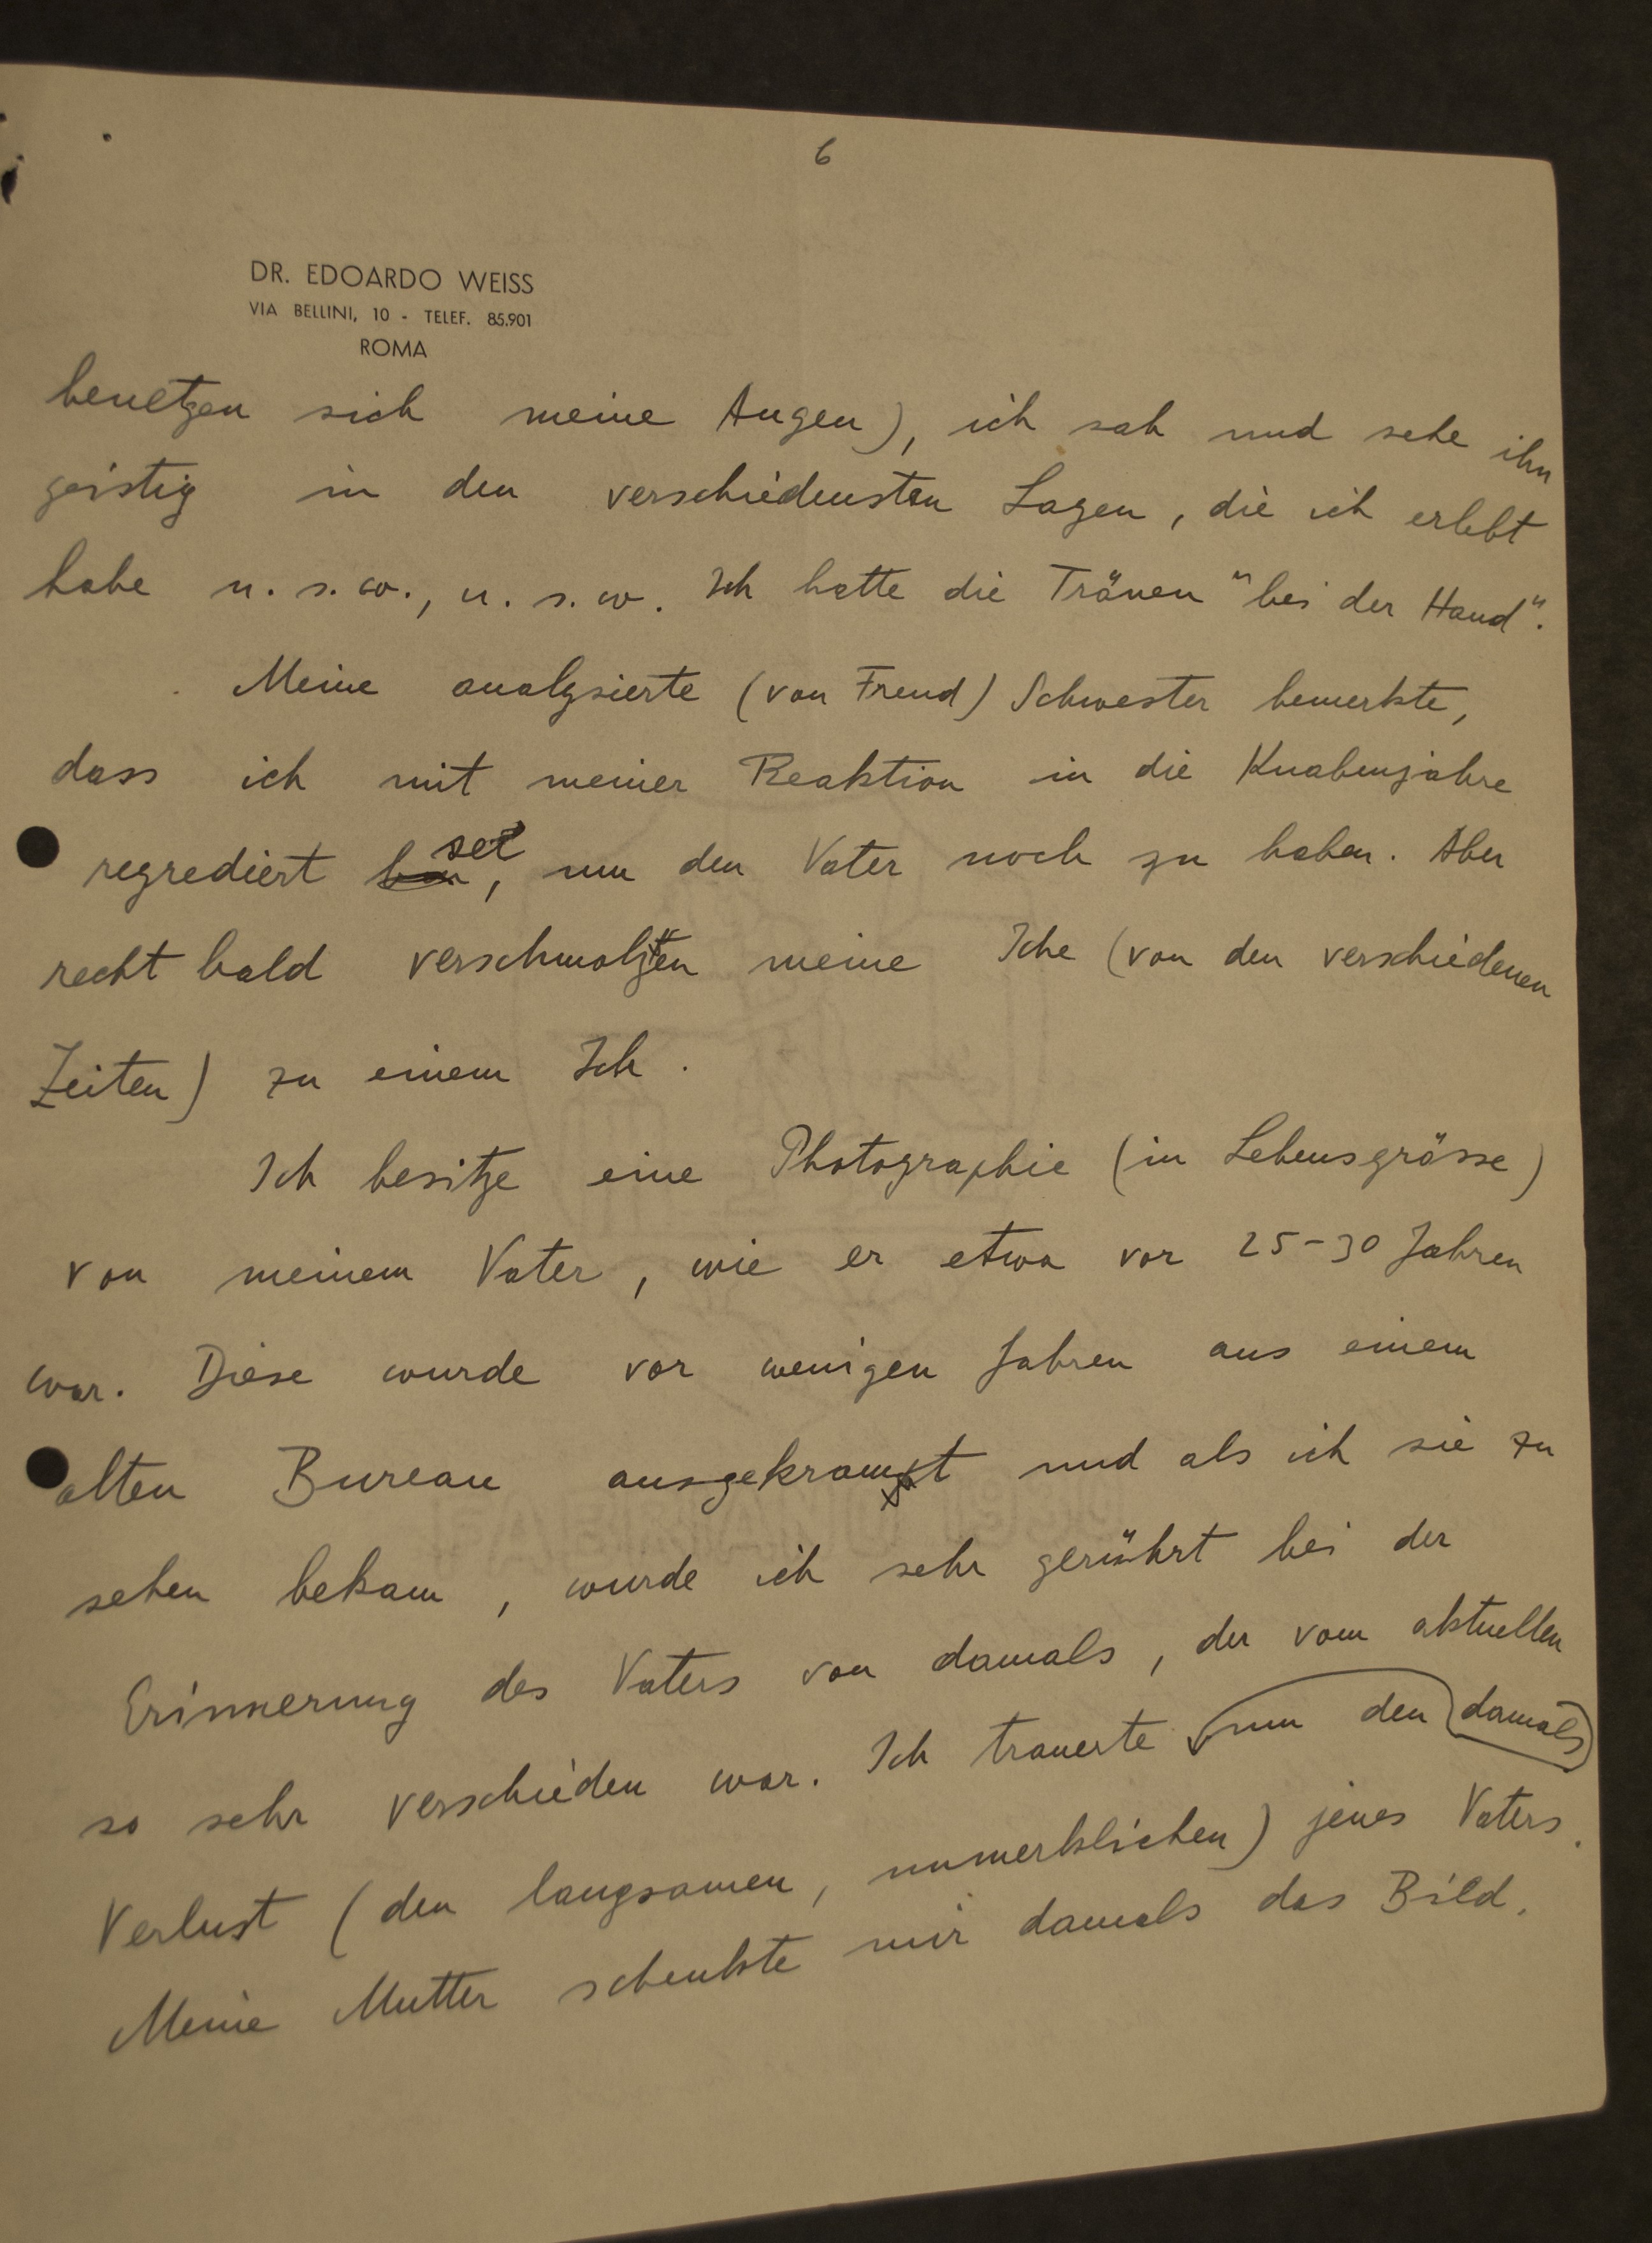 6
DR. EDOARDO WEISS
VIA BELLINI, 10 - TELEF. 85.901
ROMA
benetzen sich meine Augen), ich sah und sehe ihn
geistig in den verschiedensten Lagen, die ich erlebt
habe u. s. w., u. s. w. Ich hatte die Tränen "bei der Hand".
Meine analysierte (von Freud) Schwester bemerkte,
dass ich mit meiner Reaktion in die Knabenjahre
regrediert sei, um den Vater noch zu haben. Aber
recht bald verschmolzten meine Iche (von den verschiedenen
Zeiten) zu einem Ich.
Ich besitze eine Photographie (in Lebensgrösse)
von meinem Vater, wie er etwa vor 25-30 Jahren
war. Diese wurde vor wenigen Jahren aus einem
alten Bureau ausgekramt und als ich sie zu
sehen bekam, wurde ich sehr gerührt bei der
Erinnerung des Vaters von damals, der vom aktuellen
so sehr verschieden war. Ich trauerte um den damals
Verlust (den langsamen, unmerklichen) jenes Vaters.
Meine Mutter schenkte mir damals das Bild.